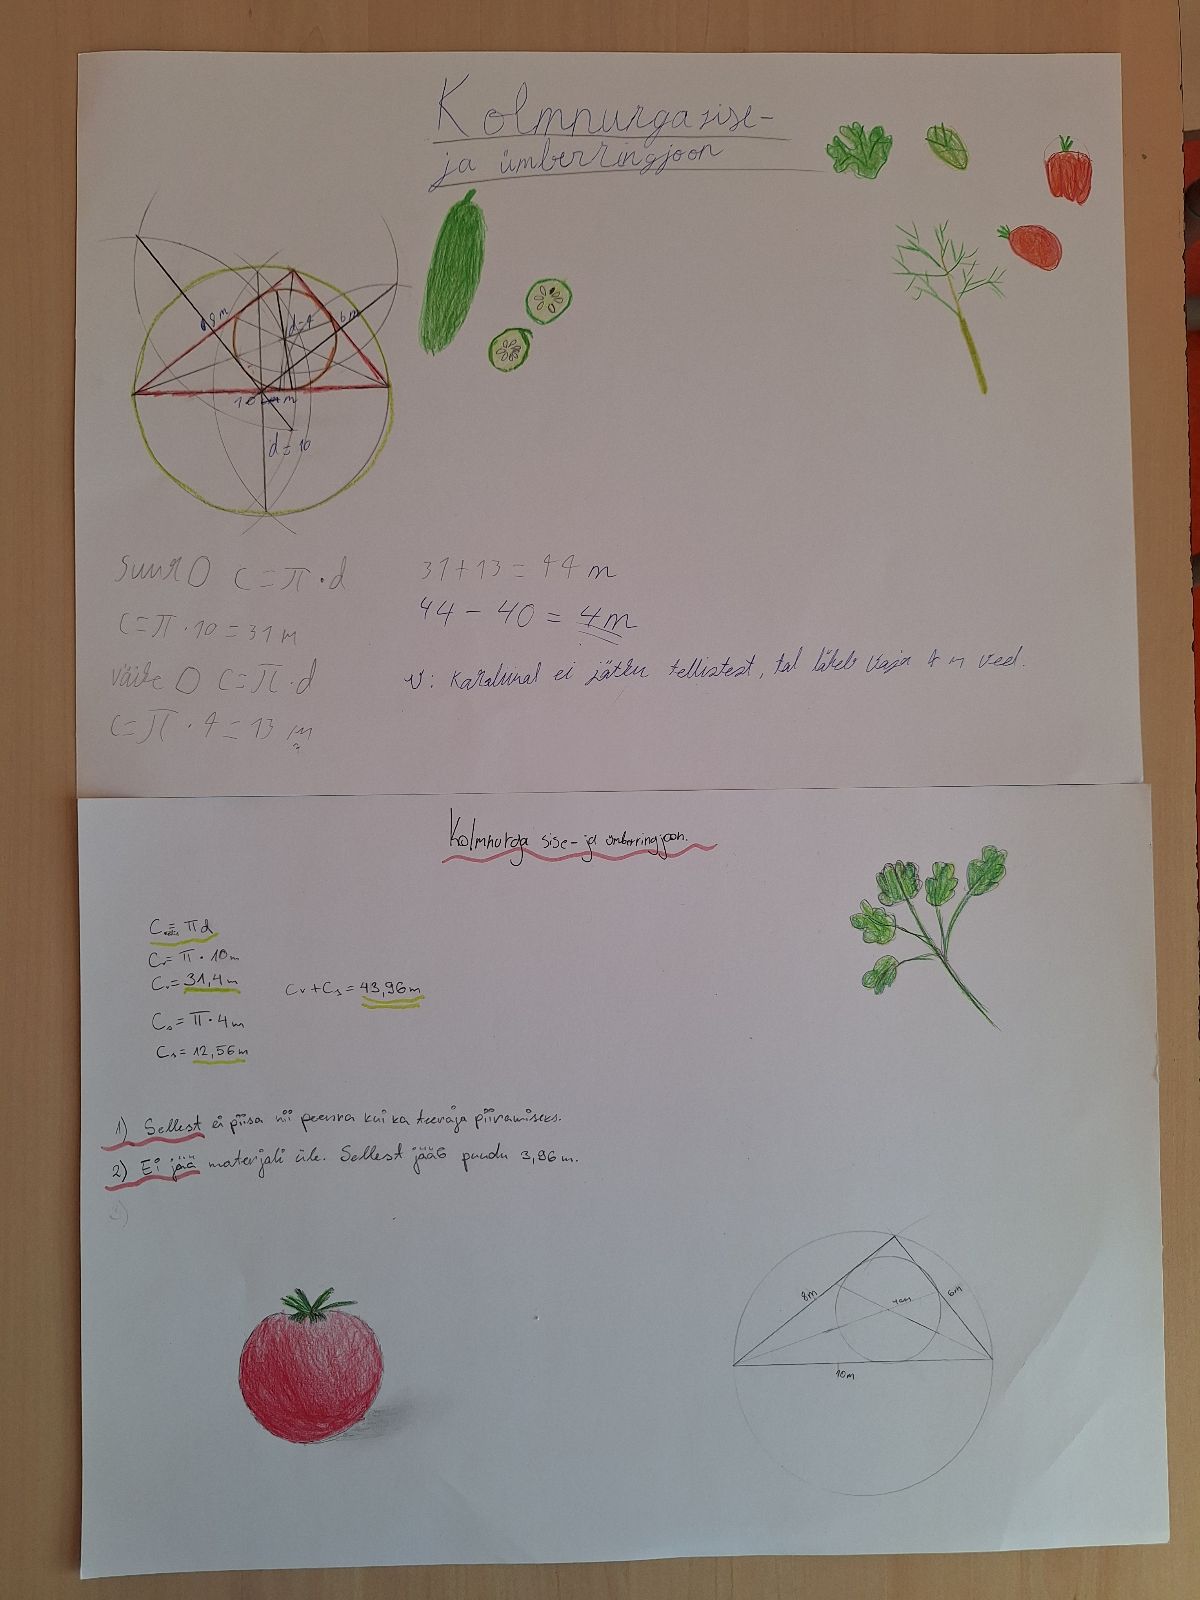 Kolmnurga sise-
ja ümberringjoon
8 m
6 m
d=4
10 m
d=10
Suur O C=π·d
C=π·10=31 m
väike O C=π·d
C=π·4=13 m
31+13=44 m
44-40=4m
V: Karoliinal ei jätku tellistest, tal läheb vaja 4 m veel.
Kolmnurga sise- ja ümberringjoon.
C=πd
Cᵥ=π·10m
Cᵥ=31,4m
Cᵥ+Cₛ=43,96m
Cₛ=π·4m
Cₛ=12,56m
1) Sellest ei piisa nii peenra kui ka teeraja piiramiseks.
2) Ei jää materjali üle. Sellest jääb puudu 3,96m.
3)
8m
6m
10m